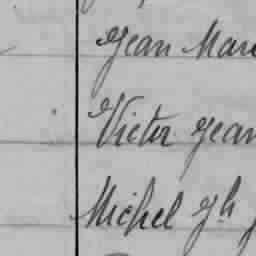 Jean Mar
Victor Jean
Michel Jh